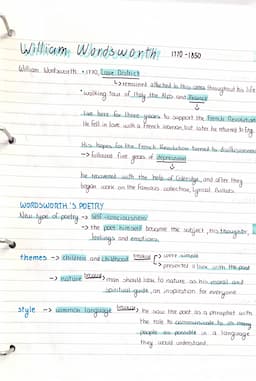 William Wordsworth 1770-1850
William Wordsworth • 1770, Lake District
↳ remained attached to this area throughout his life
*walking tour of Italy, the Alps and France
live here for three years to support the French Revolution
He fell in love with a French woman, but later he returned to Eng.
His hopes for the French Revolution turned to disillusionment
→ followed five years of depression
he recovered with the help of Coleridge, and after they
began work on the famous collection, Lyrical Ballads.
WORDSWORTH'S POETRY
New type of poetry → self-consciousness
→ the poet himself become the subject, his thoughts,
feelings and emotions.
themes → children and childhood because → were simple
→ presented a link with the past
→ nature because → man should look to nature as his moral and
spiritual guide, an inspiration for everyone
style → common language because → he saw the poet as a prophet with
the role to communicate to as many
people as possible in a language
they would understand.